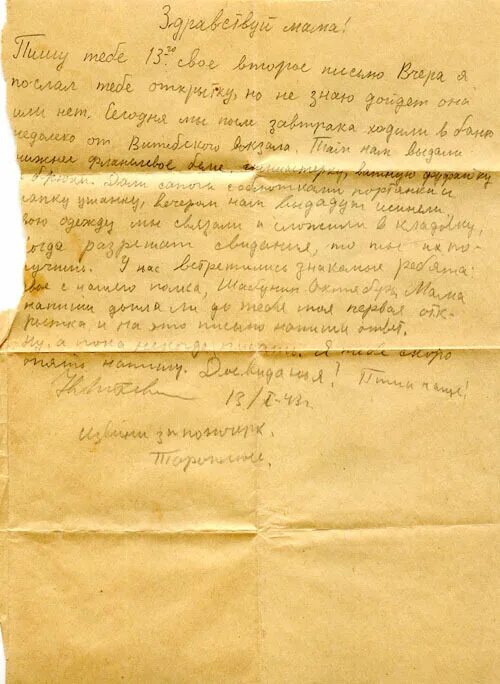 Здравствуй мама!
Пишу тебе 13²⁰ свое второе письмо Вчера я
послал тебе открытку, но не знаю дойдет она
или нет. Сегодня мы после завтрака ходили в баню
недалеко от Витебского вокзала. Там нам выдали
нижнее фланелевое белье, гимнастерку, ватную фуфайку
брюки. Дали сапоги с обмотками портянки и
шапку ушанку, вечером нам выдадут шинели
свою одежду мы связали и сложили в кладовку,
когда разрешат свидания, то ты их по-
лучишь. У нас встретились знакомые ребята:
двое с нашего полка, Шабунин Октябрь, Мама
напиши дошла ли до тебя моя первая отк-
рытка и на это письмо напиши ответ.
Ну, а пока некогда писать. Я тебе скоро
опять напишу. Досвиданья! Пиши чаще!
13/I-43г.
извини за почерк.
Тороплюсь.